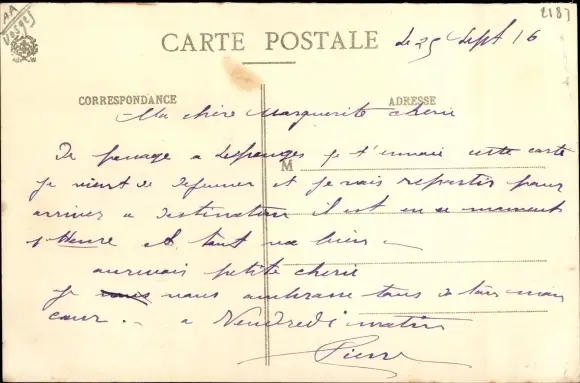 AA
Vosges
2187
CARTE POSTALE
le 25 Sept 16
CORRESPONDANCE
ADRESSE
Ma chère Marguerite cherie
De passage a Lepanges je t'envoie cette carte
M
je vient de dejeuner et je vais repartir pour
arriver a destination il est en ce moment
1 Heure et tout va bien
aurevoir petite cherie
je vous embrasse tous de tout mon
cœur .. a Vendredi matin
Pierre